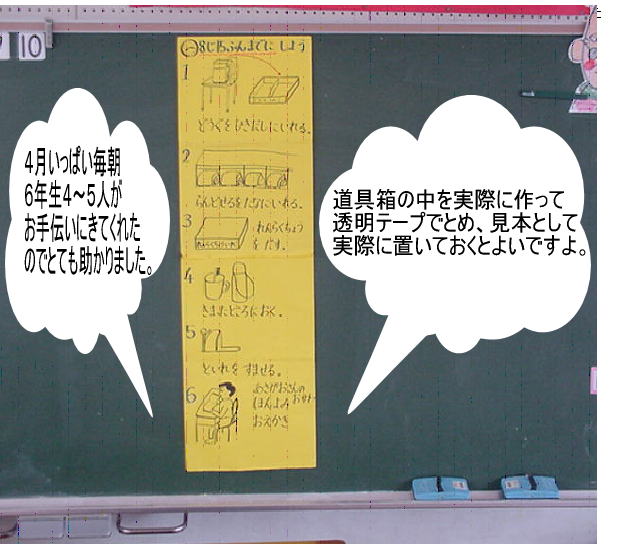 10
8じ15ふんまでに しよう
1
どうぐを ひきだしにいれる。
2
らんどせるをたなにいれる。
3
れんらくちょう
をだす。
4
きまたところにおく。
5
といれを すませる。
6
ほんよみ
おえかき
4月いっぱい毎朝
6年生4～5人が
お手伝いにきてくれた
のでとても助かりました。
道具箱の中を実際に作って
透明テープでとめ、見本として
実際に置いておくとよいですよ。